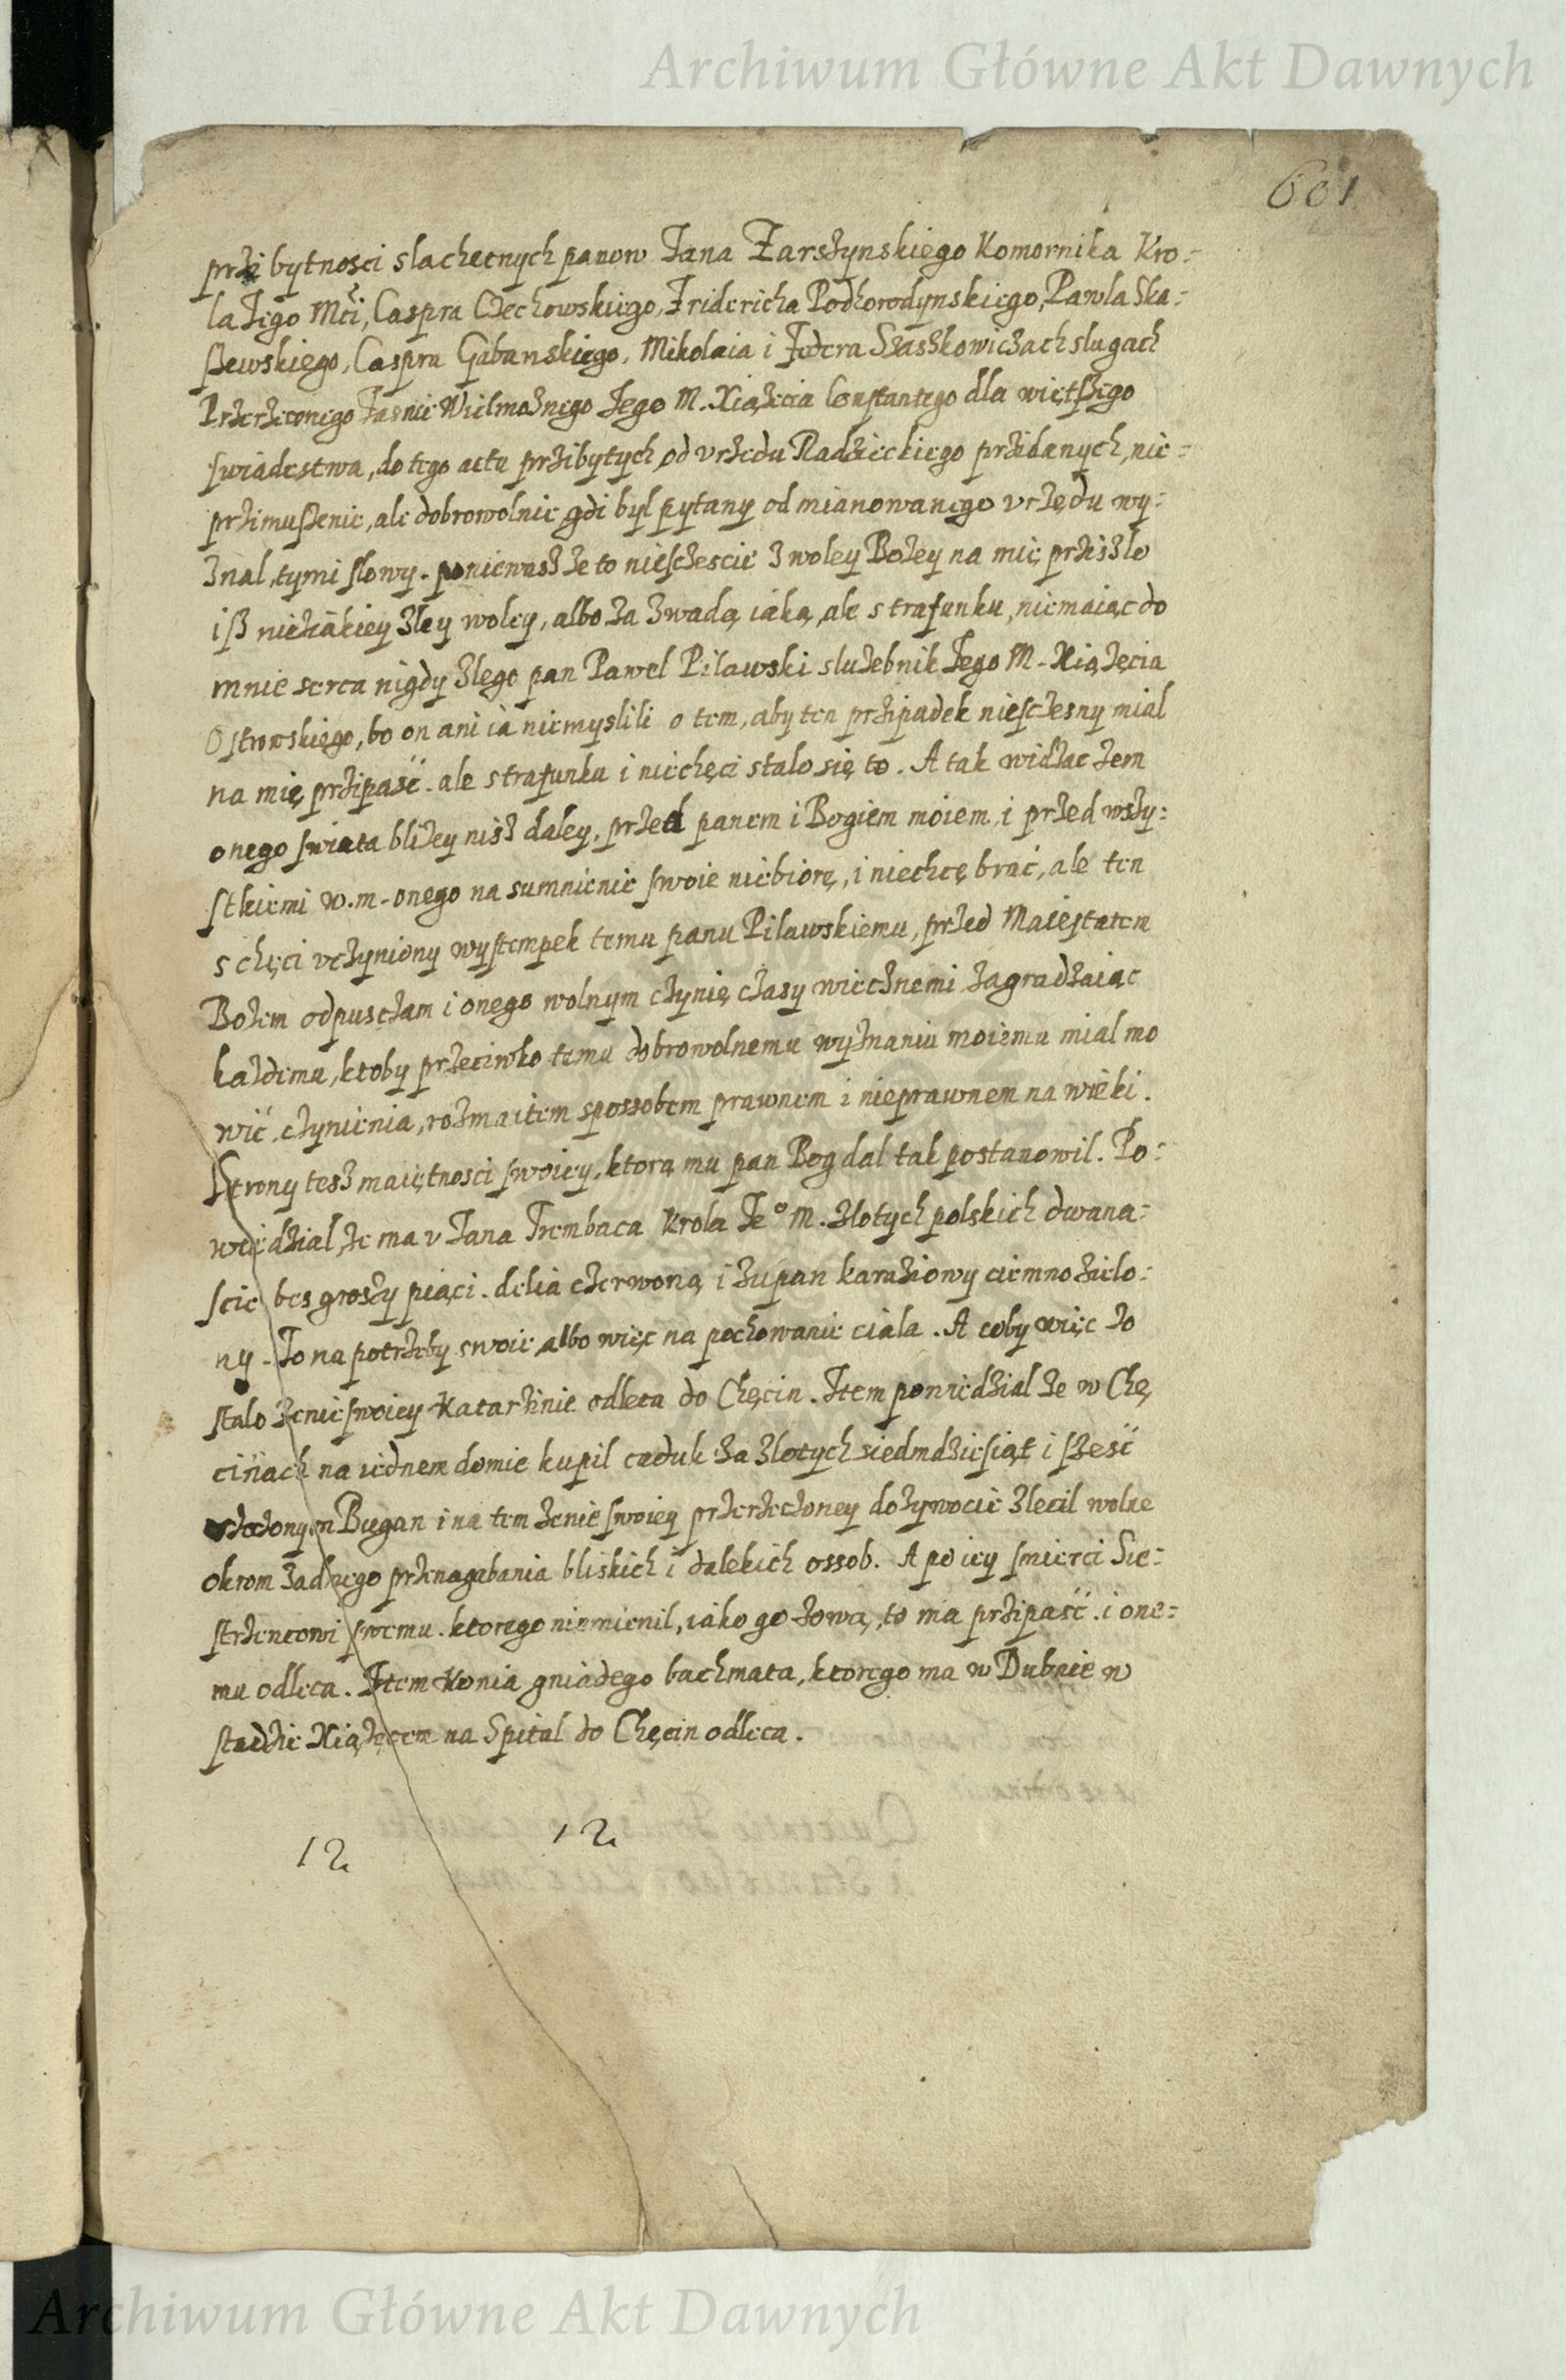 Archiwum Główne Akt Dawnych
601
przi bytnosci slachetnych panow Jana Zarszynskiego Komornika Kro-
la Jego Mci, Caspra Czechowskiego, Fridericha Podhorodynskiego, Pawla Ska-
szewskiego, Caspra Gabanskiego, Mikolaia i Fedora Staszkowiczach slugach
Przerzeconego Jasnie Wielmoznego Jego M. Xiążecia Constantego dla więtszego
swiadestwa, do tego actu przibytych, od vrzedu Radzieckiego przidanych, nie-
przimuszenie, ale dobrowolnie, gdi byl pytany od mianowanego vrzędu wy-
znal, tymi slowy. poniewasz ze to niesczescie z woley Bozey na mię prziszlo
isz nieziakiey zley woley, albo za zwadą iaką, ale s trafunku, niemaiąc do
mnie serca nigdy zlego pan Pawel Pilawski sluzebnik Jego M. Xiążęcia
Ostrowskiego, bo on ani ia niemyslili o tem, aby ten przipadek niesczesny mial
na mię przipasć. ale s trafunku i niechęci stalo się to. A tak widząc zem
onego swiata blizey nisz daley, przed panem i Bogiem moiem, i przed wszy-
stkiemi w.m. onego na sumnienie swoie niebiorę, i niechcę brać, ale ten
s chęci vczyniony wystempek temu panu Pilawskiemu, przed Maiestatem
Bozem odpusczam i onego wolnym czynię czasy wiecznemi zagradzaiąc
kazdemu, ktoby przeciwko temu dobrowolnemu wyznaniu moiemu mial mo
wić, czynienia, rozmaitem spossobem prawnem i nieprawnem na wieki.
Strony tesz maiętnosci swoiey, ktorą mu pan Bog dal tak postanowil. Po-
wiedzial, ze ma v Jana Trembaca Krola Je° M. zlotych polskich dwana-
scie bes groszy piąci. delia czerwoną i zupan karaziowy ciemno zielo-
ny. To na potrzeby swoie, albo więc na pochowanie ciala. A coby więc zo
stalo zenie swoiey Katarzinie odleca do Chęcin. Item powiedzial ze w Chę
cinach na iednem domie kupil caduk za zlotych siedmdziesiąt i szesć
Biegan i na tem zenie swoiey przerzeczoney dozywocie zlecil wolne
okrom zadnego przenagabania bliskich i dalekich ossob. A po iey smierci Sie-
strzencowi swemu. ktorego niemienil, iako go zową, to ma przipasć. i one-
mu odleca. Item Konia gniadego bachmata, ktorego ma w Dubnie w
stadzie Xiążęcem na Spital do Chęcin odleca.
12 12
Archiwum Główne Akt Dawnych